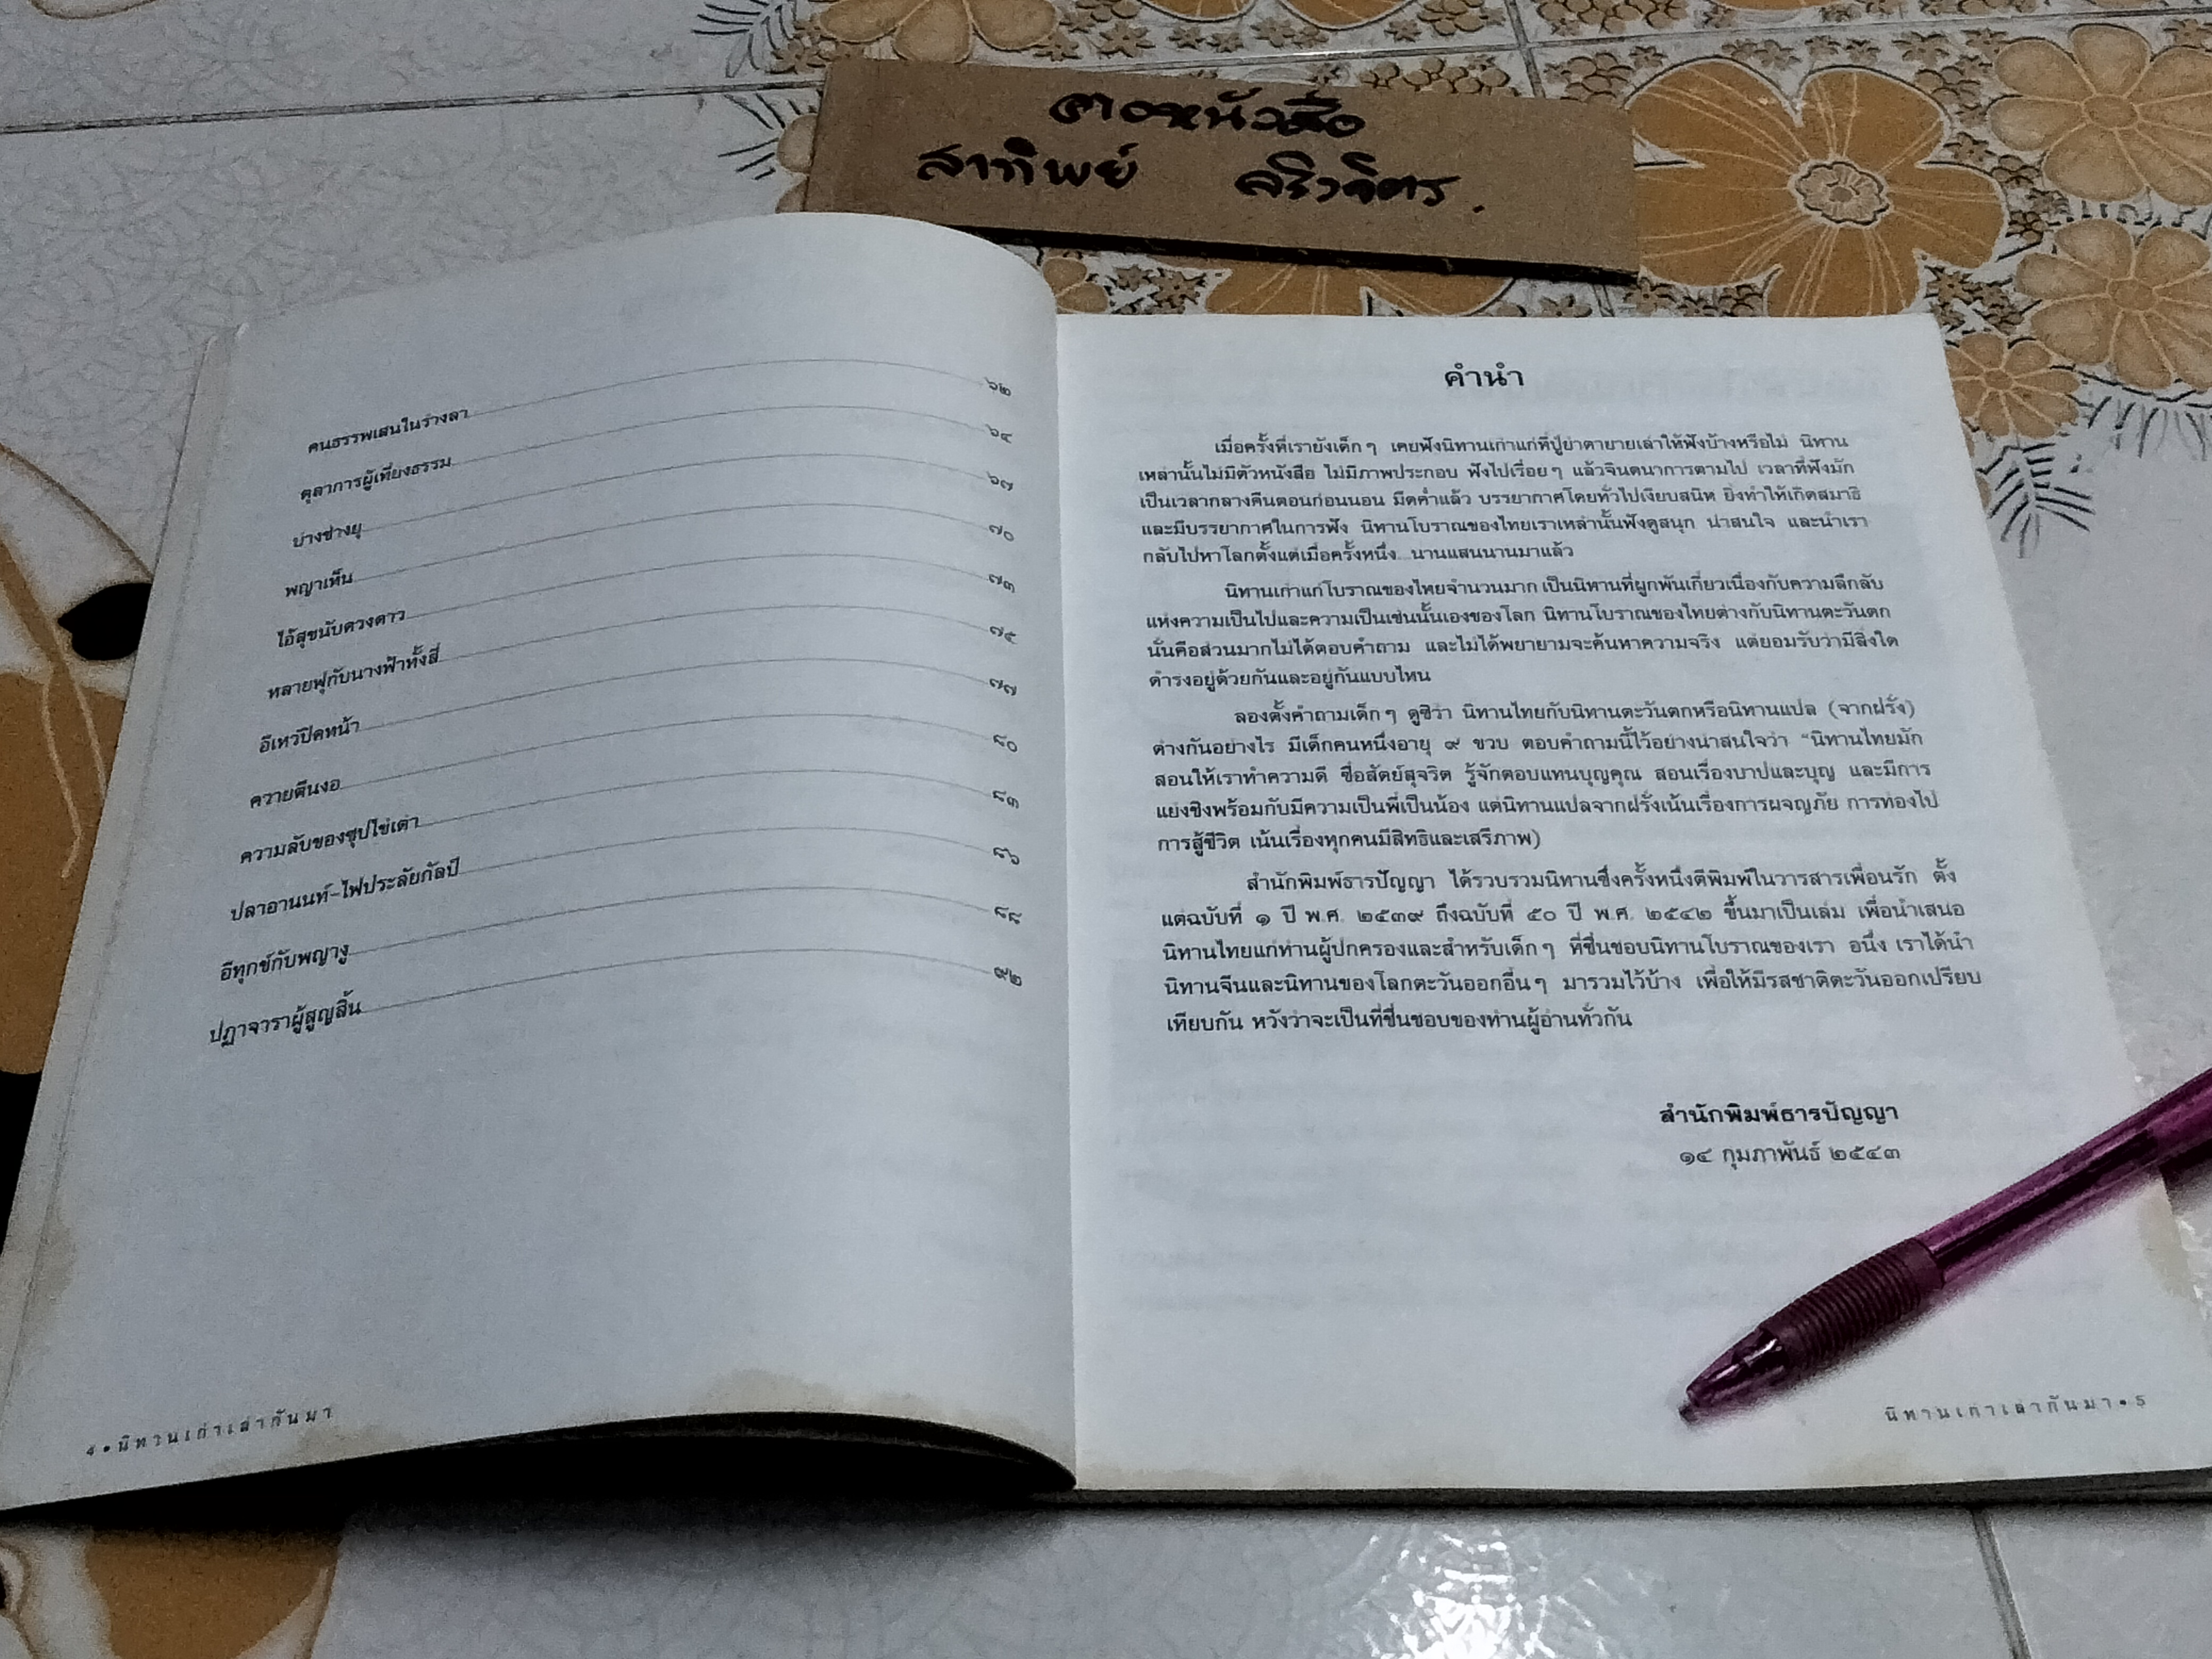 คาถหนังสือ
สาทิพย์ ศริวจิตร.
คนธรรพเสนในร่างลา ๖๒
ตุลาการผู้เที่ยงธรรม ๖๔
บ่างช่างยุ ๖๗
พญาเห็น ๗๐
ไอ้สุขนับดวงดาว ๗๓
หลายฟูกับนางฟ้าทั้งสี่ ๗๕
อีเหว่ปิดหน้า ๗๗
ควายตีนงอ ๘๐
ความลับของซุปไข่เต่า ๘๓
ปลาอานนท์-ไฟประลัยกัลป์ ๘๖
อีทุกข์กับพญางู ๘๘
ปฏาจาราผู้สูญสิ้น ๙๒
4 • นิทานเก่าเล่ากันมา
คำนำ
เมื่อครั้งที่เรายังเด็กๆ เคยฟังนิทานเก่าแก่ที่ปู่ย่าตายายเล่าให้ฟังบ้างหรือไม่ นิทาน
เหล่านั้นไม่มีตัวหนังสือ ไม่มีภาพประกอบ ฟังไปเรื่อยๆ แล้วจินตนาการตามไป เวลาที่ฟังมัก
เป็นเวลากลางคืนตอนก่อนนอน มืดค่ำแล้ว บรรยากาศโดยทั่วไปเงียบสนิท ยิ่งทำให้เกิดสมาธิ
และมีบรรยากาศในการฟัง นิทานโบราณของไทยเราเหล่านั้นฟังดูสนุก น่าสนใจ และนำเรา
กลับไปหาโลกตั้งแต่เมื่อครั้งหนึ่ง...นานแสนนานมาแล้ว
นิทานเก่าแก่โบราณของไทยจำนวนมาก เป็นนิทานที่ผูกพันเกี่ยวเนื่องกับความลึกลับ
แห่งความเป็นไปและความเป็นเช่นนั้นเองของโลก นิทานโบราณของไทยต่างกับนิทานตะวันตก
นั่นคือส่วนมากไม่ได้ตอบคำถาม และไม่ได้พยายามจะค้นหาความจริง แต่ยอมรับว่ามีสิ่งใด
ดำรงอยู่ด้วยกันและอยู่กันแบบไหน
ลองตั้งคำถามเด็กๆ ดูซิว่า นิทานไทยกับนิทานตะวันตกหรือนิทานแปล (จากฝรั่ง)
ต่างกันอย่างไร มีเด็กคนหนึ่งอายุ ๙ ขวบ ตอบคำถามนี้ไว้อย่างน่าสนใจว่า "นิทานไทยมัก
สอนให้เราทำความดี ซื่อสัตย์สุจริต รู้จักตอบแทนบุญคุณ สอนเรื่องบาปและบุญ และมีการ
แย่งชิงพร้อมกับมีความเป็นพี่เป็นน้อง แต่นิทานแปลจากฝรั่งเน้นเรื่องการผจญภัย การท่องไป
การสู้ชีวิต เน้นเรื่องทุกคนมีสิทธิและเสรีภาพ)
สำนักพิมพ์ธารปัญญา ได้รวบรวมนิทานซึ่งครั้งหนึ่งตีพิมพ์ในวารสารเพื่อนรัก ตั้ง
แต่ฉบับที่ ๑ ปี พ.ศ. ๒๕๓๙ ถึงฉบับที่ ๕๐ ปี พ.ศ. ๒๕๔๒ ขึ้นมาเป็นเล่ม เพื่อนำเสนอ
นิทานไทยแก่ท่านผู้ปกครองและสำหรับเด็กๆ ที่ชื่นชอบนิทานโบราณของเรา อนึ่ง เราได้นำ
นิทานจีนและนิทานของโลกตะวันออกอื่นๆ มารวมไว้บ้าง เพื่อให้มีรสชาติตะวันออกเปรียบ
เทียบกัน หวังว่าจะเป็นที่ชื่นชอบของท่านผู้อ่านทั่วกัน
สำนักพิมพ์ธารปัญญา
๑๔ กุมภาพันธ์ ๒๕๔๓
นิทานเก่าเล่ากันมา • 5